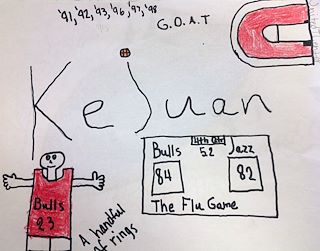 '91, '92, '93, '96, '97, '98
G.O.A.T
KeJuan
Bulls
4th Qtr
Jazz
5.2
84
82
The Flu Game
Bulls
23
A handful
of rings